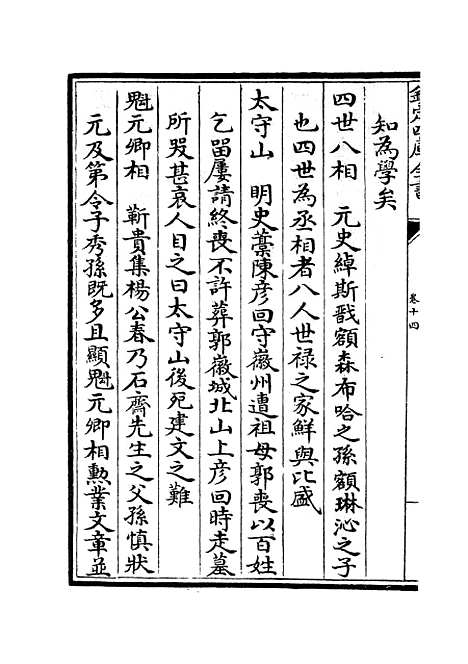 欽定四庫全書
卷十四
知為學矣
四世八相　元史綽斯戩額森布哈之孫額琳沁之子
也四世為丞相者八人世禄之家鮮與比盛
太守山　明史藁陳彦回守徽州遭祖母郭喪以百姓
乞留屢請終喪不許葬郭徽城北山上彦回時走墓
所哭甚哀人目之曰太守山後死建文之難
魁元卿相　靳貴集楊公春乃石齋先生之父孫慎狀
元及第令子秀孫既多且顯魁元卿相勲業文章並